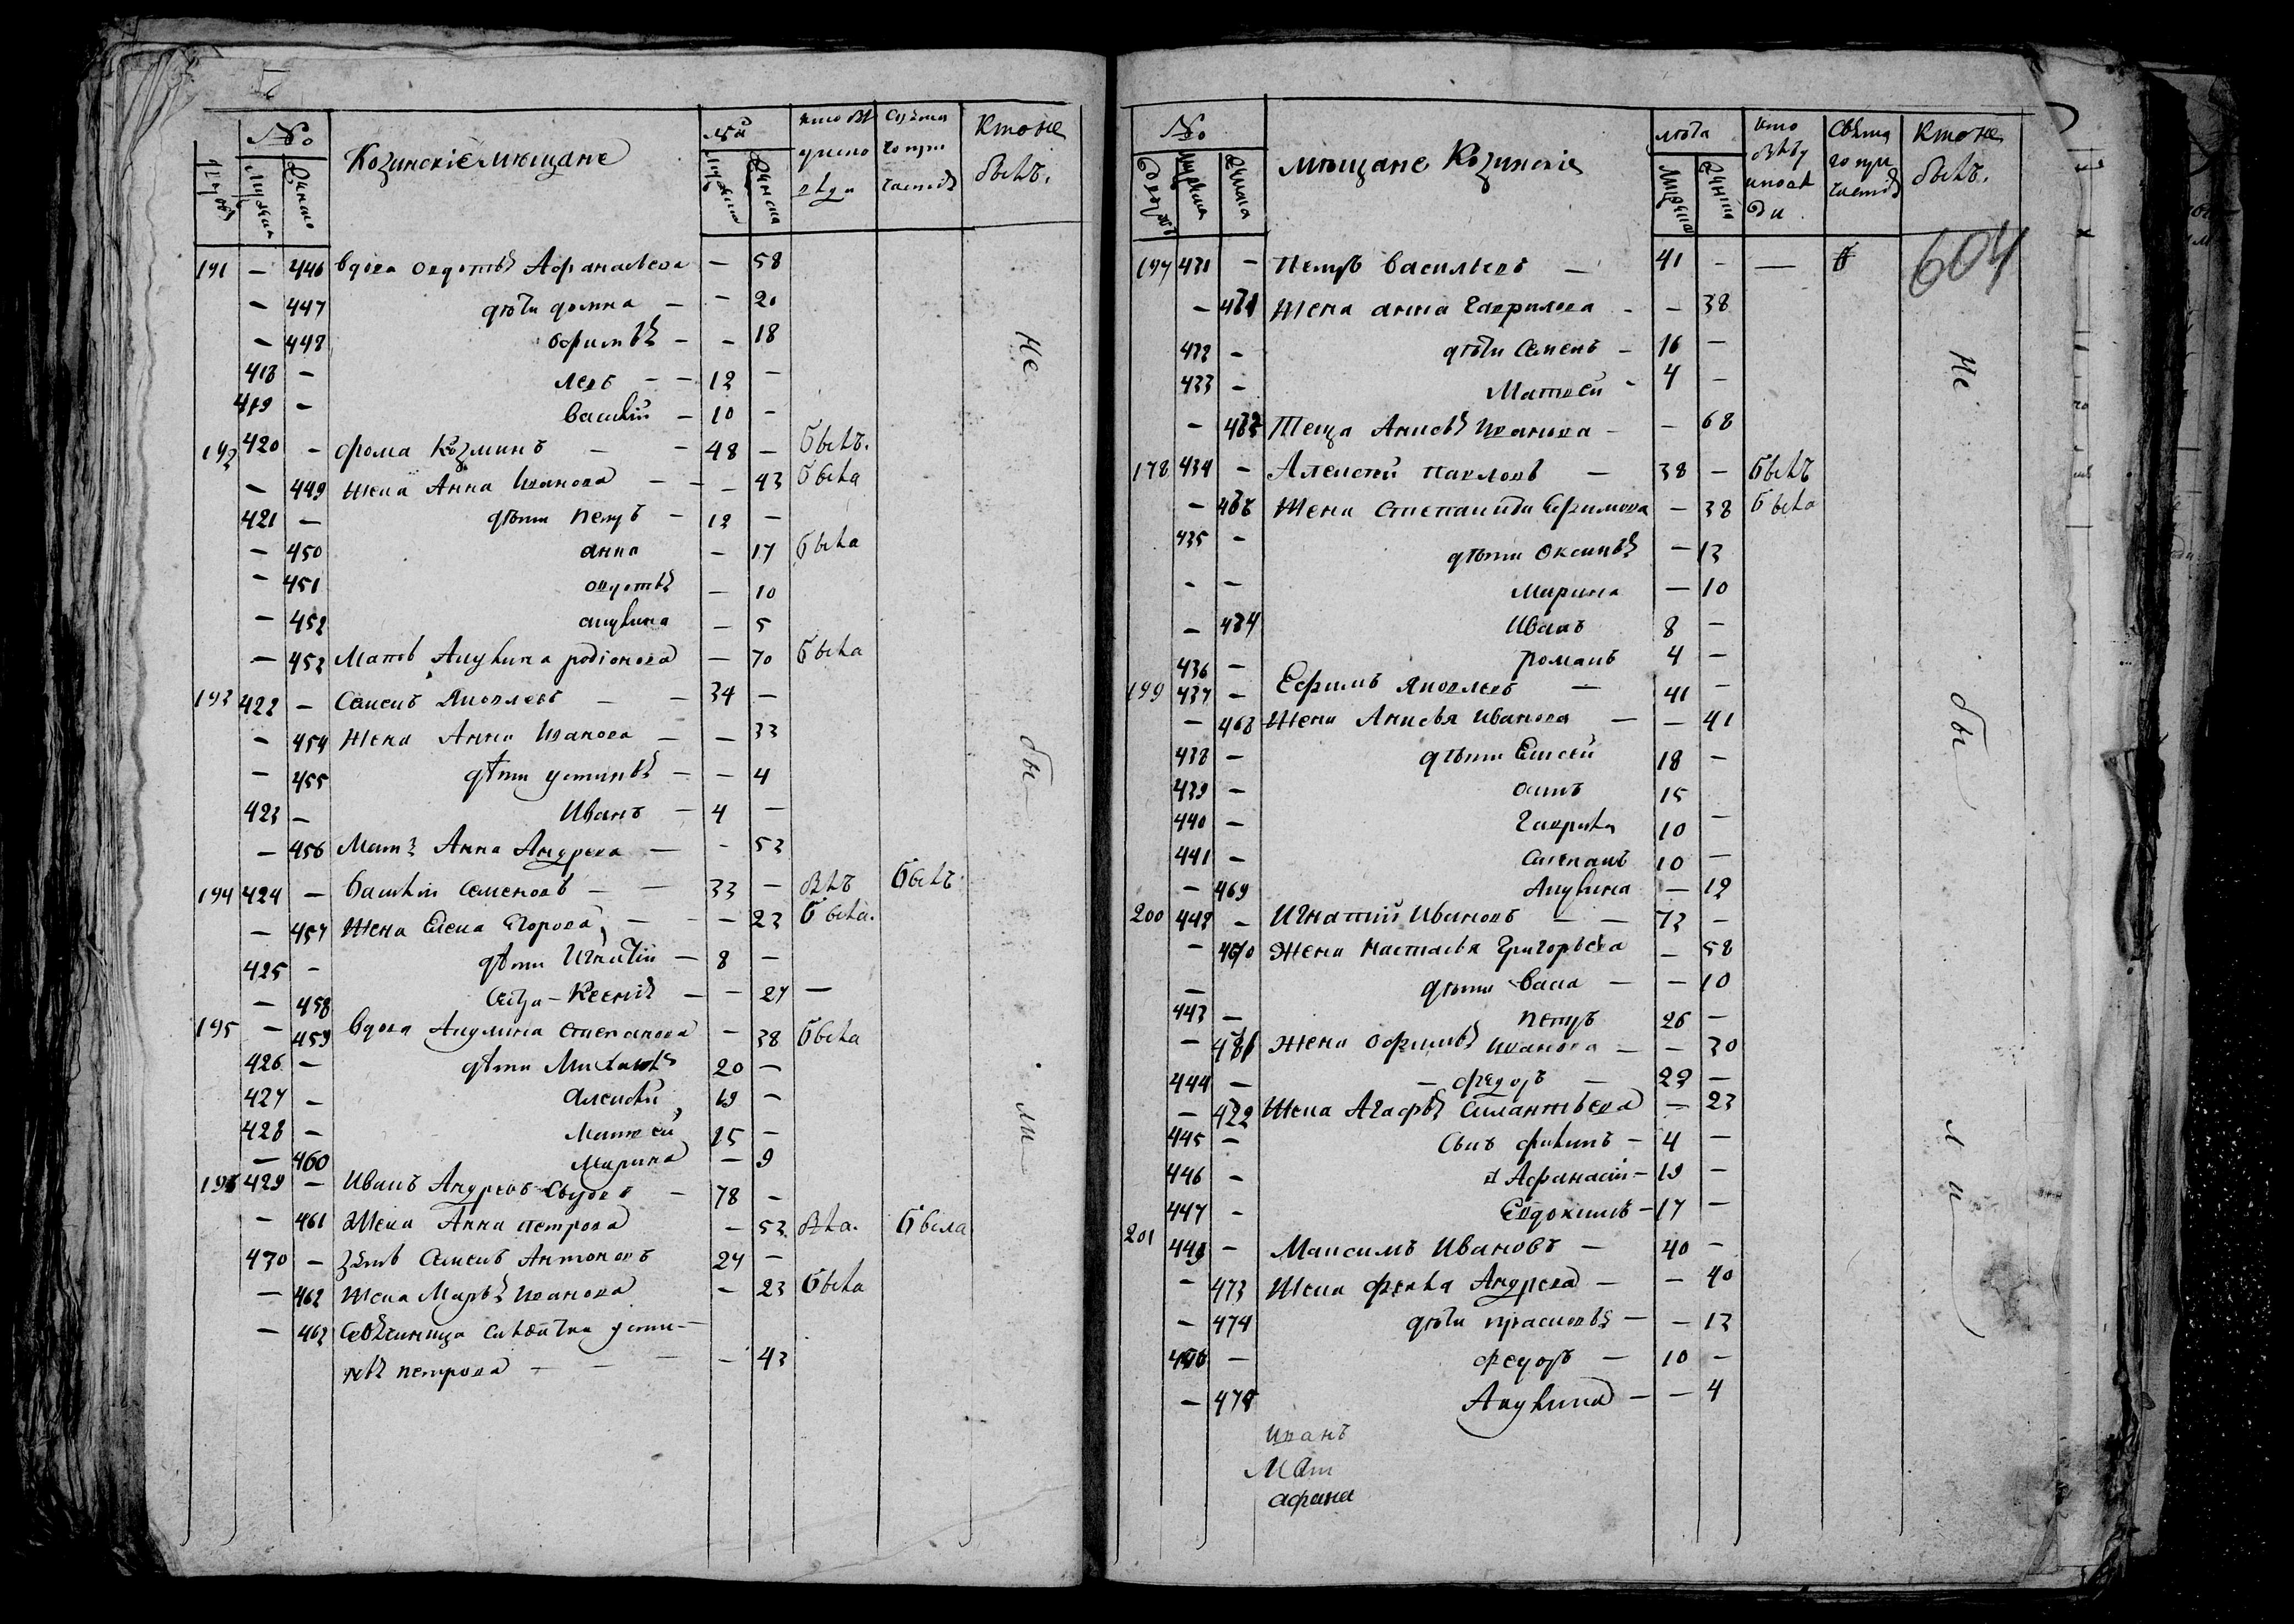 №
Козинскіе мѣщане
Кто не былъ.
191 — 446 вдова Овдотья Афанасьева — 58
— 447 дѣти домна — — 20
— 448 Офимья — — 18
418 — левъ — — 12 —
419 — Василій — 10 —
192 420 — фома Козминъ — — 48 — былъ.
— 449 жена Анна Иванова — — — 43 была
421 — дѣти петръ — 12 —
— 450 анна — 17 была
— 451 овдотья — 10
— 452 акулина — 5
— 453 Мать Акулина родіонова — 70 была
193 422 — Семенъ Яковлевъ — — 34 —
— 454 жена Анна Иванова — — 33
— 455 дѣти устинья — — 4
423 — Иванъ — 4 —
— 456 Мать Анна Андреева — — 53
194 424 — Василій Семеновъ — — 33 — былъ былъ
— 457 жена Елена Егорова — — — 23 была.
425 — дѣти Игнатій — 8 —
— 458 Сестра — Ксенія — — 27 —
195 — 459 вдова Акулина степанова — 38 была
426 — дѣти Михаилъ 20 —
427 — Алексѣй 19 —
428 — Матвей 15 —
— 460 Марина — 9
196 429 — Иванъ Андреевъ — 78 —
— 461 жена Анна петрова — 53 была. была
430 — зять Семенъ Антоновъ 24 —
— 462 жена Марья Иванова — 23 была
— 463 усти-
нья петрова — — — — 43
Не бы ли
№
мѣщане Козинскіе
лѣта
Кто не былъ.
604
197 431 — петръ васильевъ — 41 — —
— жена анна гаврилова — — 38
432 — дѣти Семенъ — 16 —
433 — Матвей — 4 —
— Теща Анисья Иванова — — 68
178 434 — Алексей павловъ — 38 — былъ
— жена степанида Ефимова — 38 была
435 — дѣти Оксинья — 13
— — марина — 10
— Иванъ 8 —
436 — романъ 4 —
199 437 — Ефимъ яковлевъ — 41 —
— 468 жена Анисья Иванова — — 41
438 — дѣти Елисей 18 —
439 — 15
440 — Гаврила 10 —
441 — степанъ 10 —
— 469 Акулина — 12
200 442 — Игнатій Ивановъ — — 73 —
— 470 жена настасья григорьева — 58
— дѣти Васа — — 10
443 — петръ 26 —
— жена Офимья Иванова — — 30
444 — — федоръ — 23 —
— жена Агафья Силантьева — 23
445 — Сынъ филипъ — 4 —
446 — Афанасій — 19 —
447 — Евдокимъ — 17 —
201 448 — Максимъ Ивановъ — 40 —
— 473 жена фекла Андреева — — 40
— 474 дѣти прасковья — — 13
— федоръ — 10 —
— 475 Акулина — — 4
иванъ
Мат
афана
Не бы ли